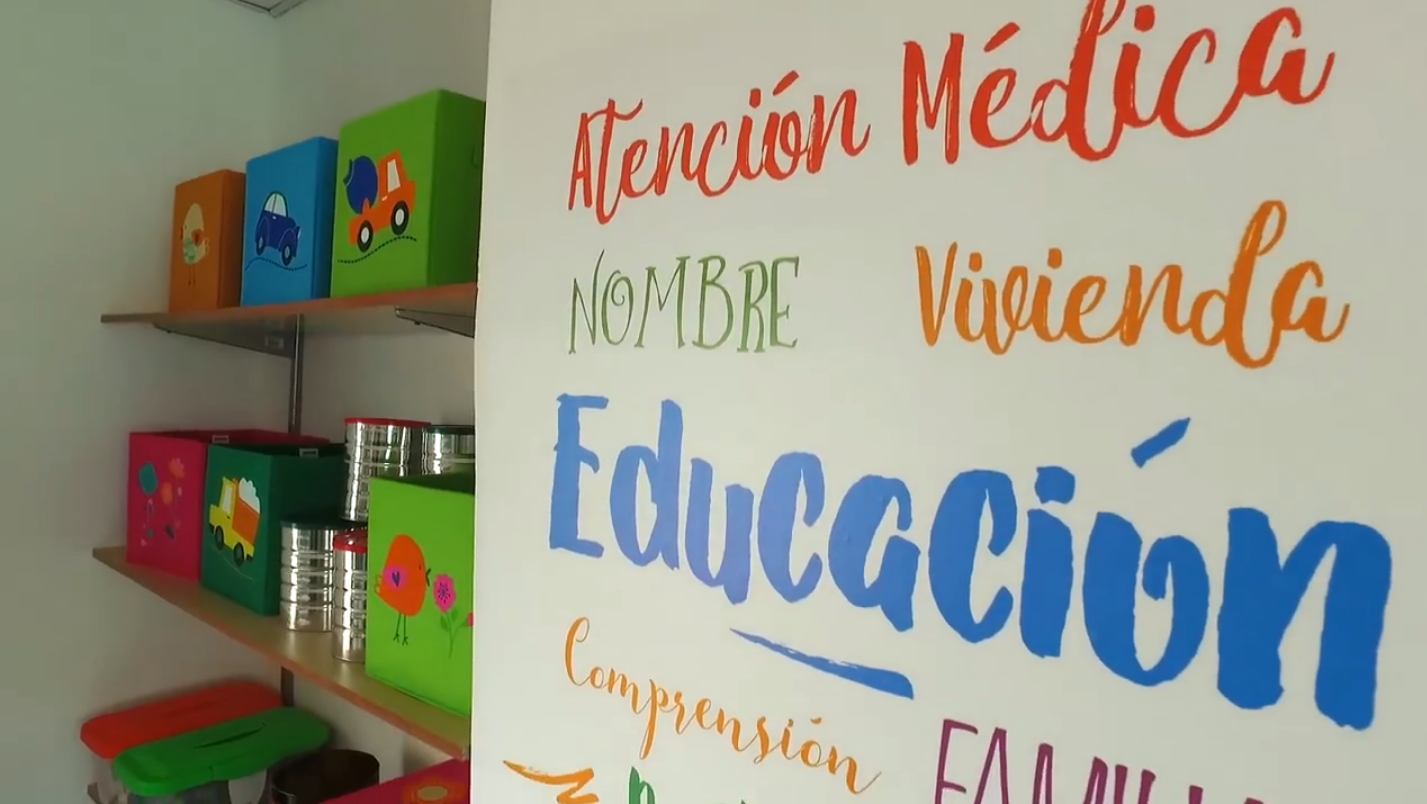 Atención Médica
NOMBRE Vivienda
Educación
Comprensión
FAMILI